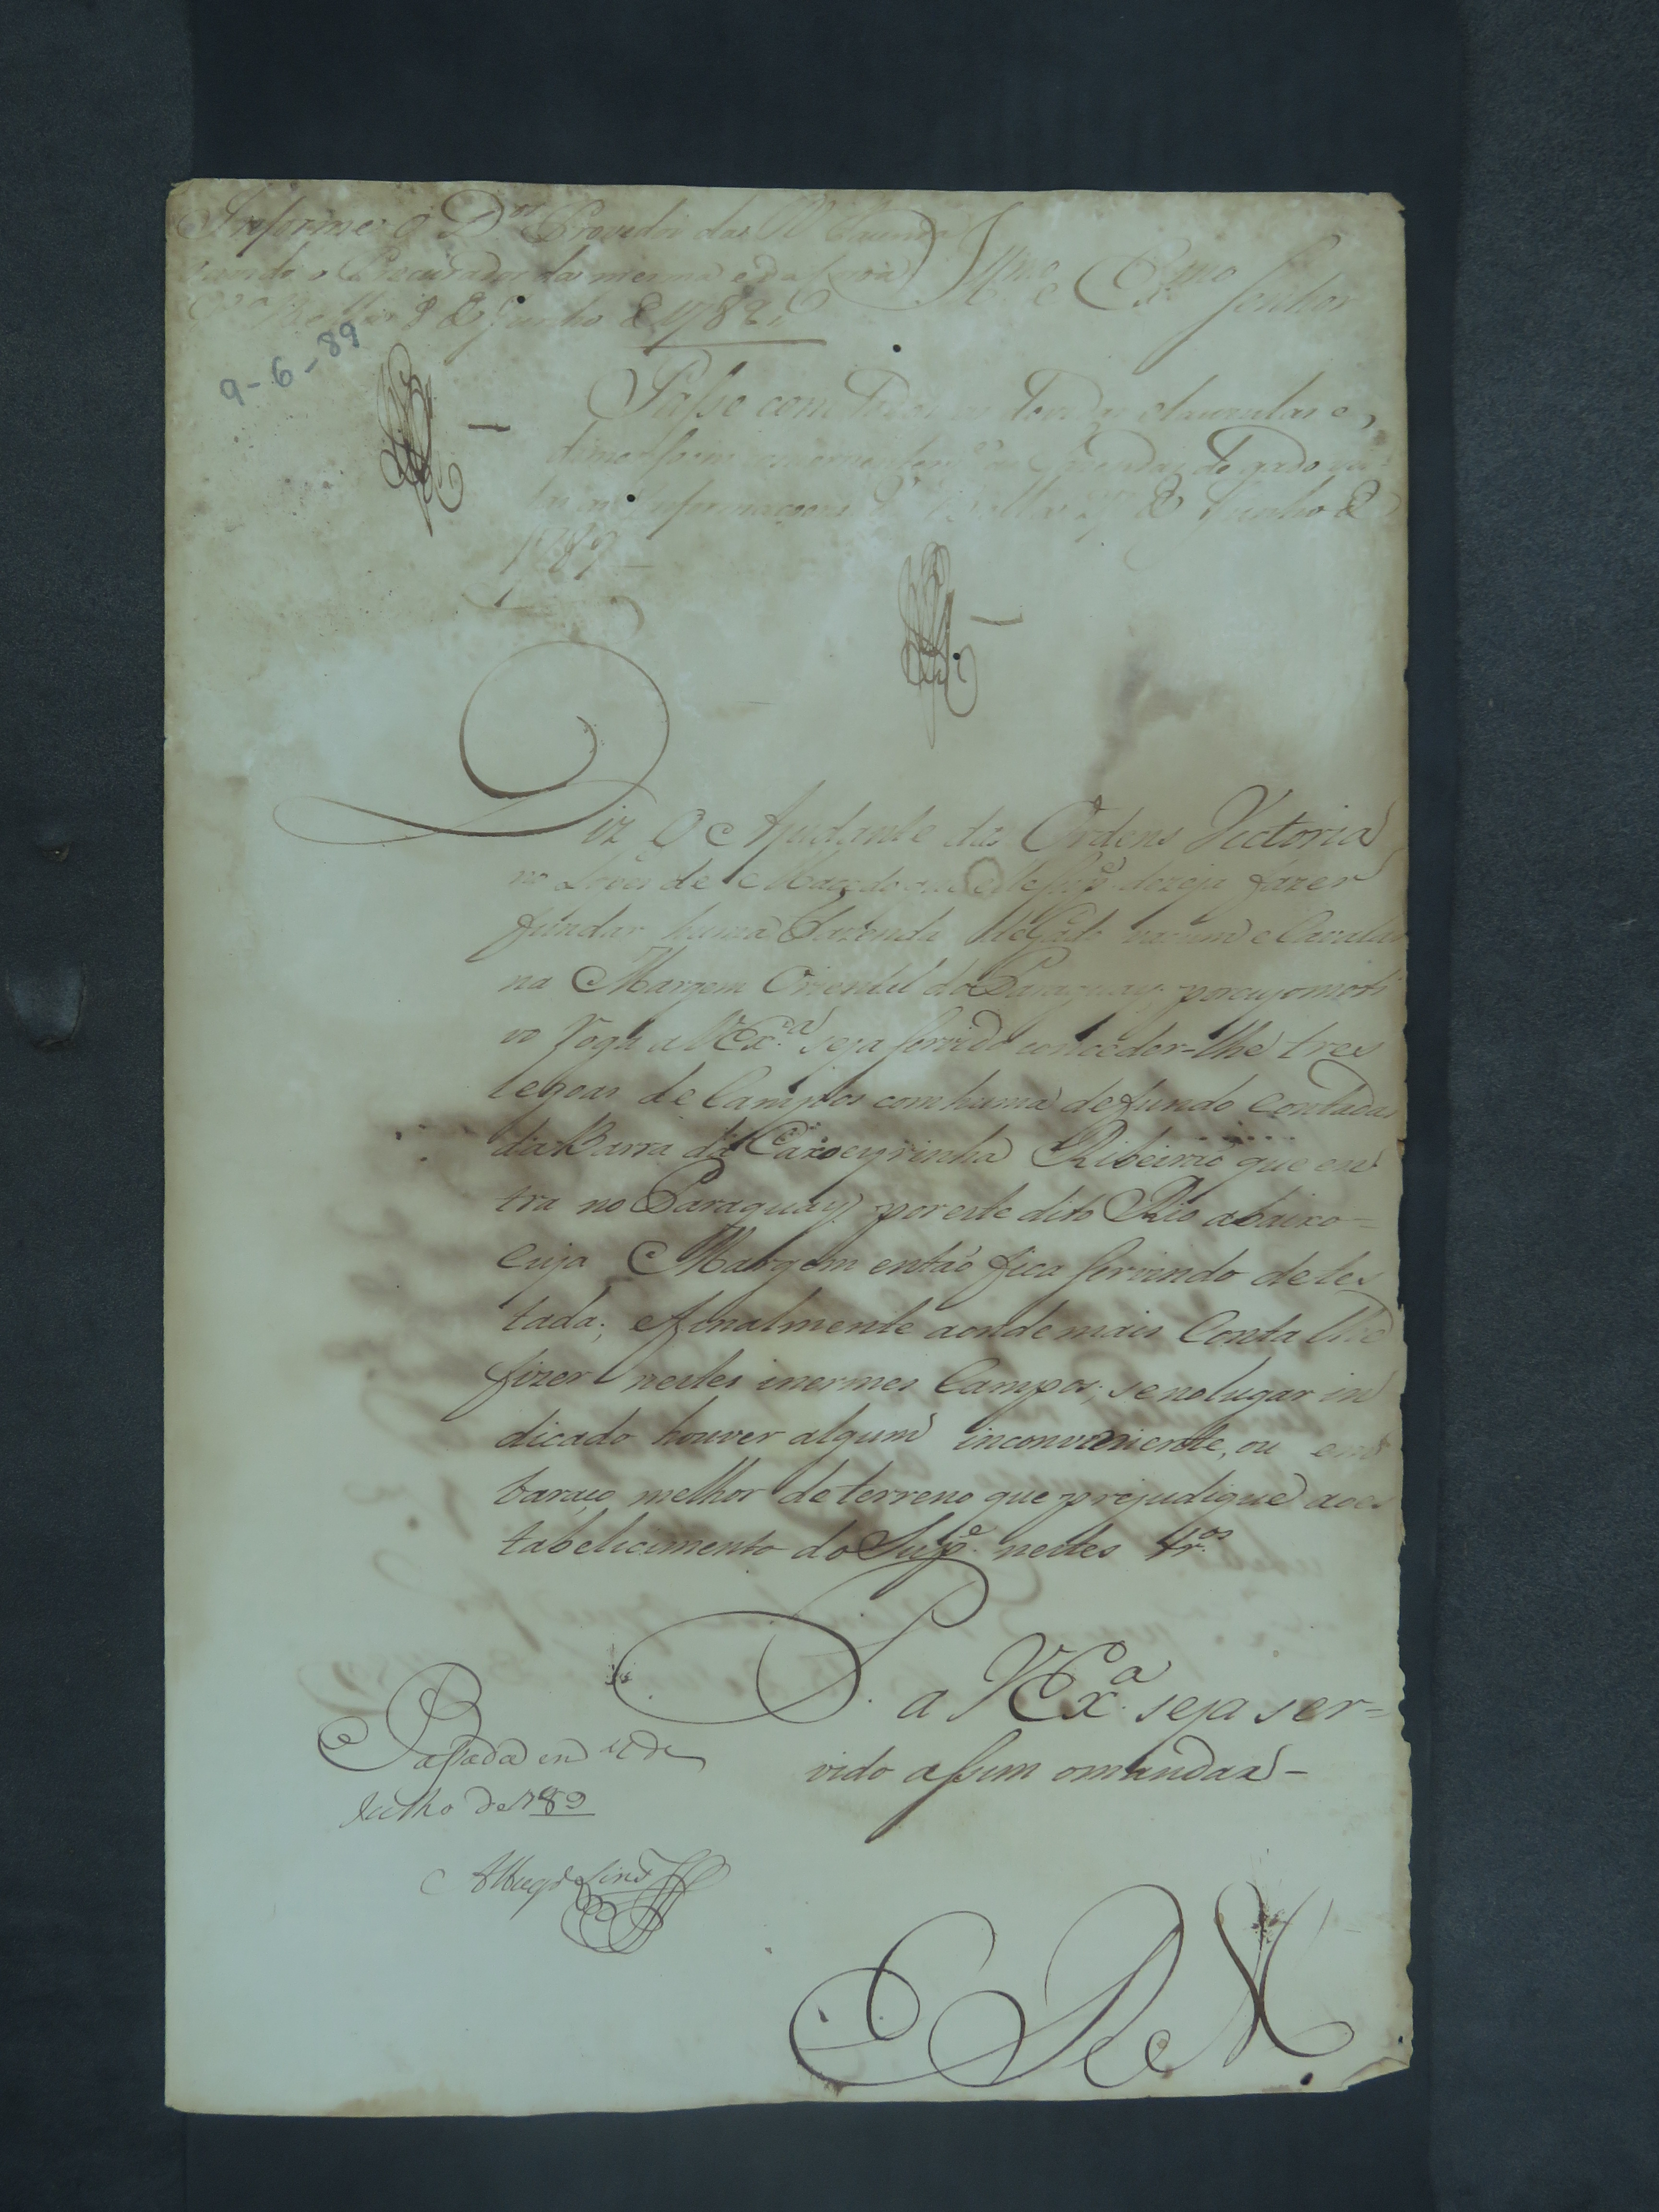 Informe o D.or Provedor da R. Fazenda
ouvindo o Procurador da mesma e da Coroa
V.a Bella 9 de Junho de 1789
9-6-89
Illmo e Exmo Senhor
Passe com todas as clauzulas e,
fazendas de gado
informaçoens V.a Bella de Junho de
1789
Diz o Ajudante das Ordens Victoria
no Lopes de Macedo que elle Sup.e dezeja fazer
fundar huma Fazenda de Gado vacum e Cavalar
na Margem Oriental do Paraguay, por cujo moti
vo roga a VEx.a seja servido conceder-lhe tres
legoas de Campos com huma de fundo contadas
da Barra da Caxoeyrinha Ribeirão que en
tra no Paraguay por este dito Rio abaixo=
cuja Margem então fica servindo de tes
tada; e finalmente aonde mais Conta lhe
fizer nestes inermes Campos, se no lugar in
dicado houver algum inconveniente, ou em
baraço melhor de terreno que prejudique ao es
tabelicimento do Sup.e nestes tr.os
P. a VEx.a seja ser=
vido assim o mandar-
Passada em de
Julho de 789
E R M